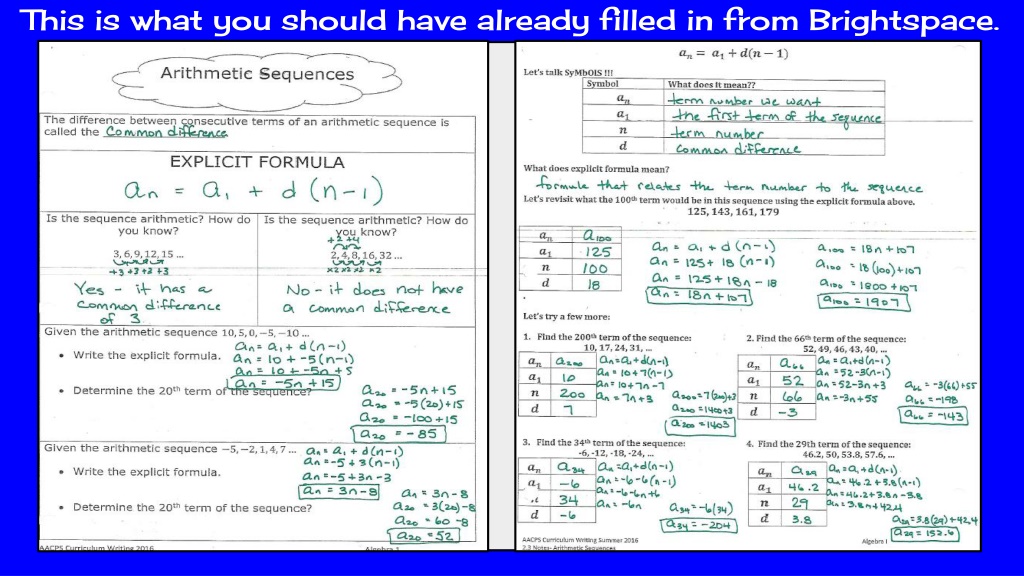 This is what you should have already filled in from Brightspace.
Arithmetic Sequences
The difference between consecutive terms of an arithmetic sequence is
called the Common difference
EXPLICIT FORMULA
an = a1 + d (n-1)
Is the sequence arithmetic? How do
you know?
3, 6, 9, 12, 15 ...
+3 +3 +3 +3
Yes - it has a
Common difference
of 3
Is the sequence arithmetic? How do
you know?
+2 +4
2, 4, 8, 16, 32 ...
x2 x2 x2 x2
No - it does not have
a common difference
Given the arithmetic sequence 10, 5, 0, −5, −10 ...
an = a1 + d(n-1)
• Write the explicit formula.
an = 10 + -5(n-1)
an = 10 + -5n + 5
an = -5n + 15
• Determine the 20th term of the sequence?
a20 = -5n+15
a20 = -5(20)+15
a20 = -100+15
a20 = -85
Given the arithmetic sequence −5, −2, 1, 4, 7 ...
an = a1 + d(n-1)
an = -5 + 3(n-1)
• Write the explicit formula.
an = -5 + 3n - 3
an = 3n - 8
• Determine the 20th term of the sequence?
an = 3n - 8
a20 = 3(20) - 8
a20 = 60 - 8
a20 = 52
AACPS Curriculum Writing 2016
Algebra 1
an = a1 + d(n − 1)
Let's talk SyMbOlS !!!
Symbol What does it mean??
an term number we want
a1 the first term of the sequence
n term number
d common difference
What does explicit formula mean?
formula that relates the term number to the sequence
Let's revisit what the 100th term would be in this sequence using the explicit formula above.
125, 143, 161, 179
an a100
a1 125
n 100
d 18
an = a1 + d (n-1)
an = 125 + 18 (n-1)
an = 125 + 18n - 18
an = 18n + 107
a100 = 18n + 107
a100 = 18 (100) + 107
a100 = 1800 + 107
a100 = 1907
Let's try a few more:
1. Find the 200th term of the sequence:
10, 17, 24, 31, ...
an a200
a1 10
n 200
d 7
an = a1 + d(n-1)
an = 10 + 7(n-1)
an = 10 + 7n - 7
an = 7n + 3
a200 = 7(200)+3
a200 = 1400+3
a200 = 1403
2. Find the 66th term of the sequence:
52, 49, 46, 43, 40, ...
an a66
a1 52
n 66
d -3
an = a1 + d(n-1)
an = 52 - 3(n-1)
an = 52 - 3n + 3
an = -3n + 55
a66 = -3(66)+55
a66 = -198
a66 = -143
3. Find the 34th term of the sequence:
-6, -12, -18, -24, ...
an a34
a1 -6
n 34
d -6
an = a1 + d(n-1)
an = -6 - 6(n-1)
an = -6 - 6n + 6
an = -6n
a34 = -6(34)
a34 = -204
4. Find the 29th term of the sequence:
46.2, 50, 53.8, 57.6, ...
an a29
a1 46.2
n 29
d 3.8
an = a1 + d(n-1)
an = 46.2 + 3.8(n-1)
an = 46.2 + 3.8n - 3.8
an = 3.8n + 42.4
a29 = 3.8(29) + 42.4
a29 = 152.6
AACPS Curriculum Writing Summer 2016
2.3 Notes- Arithmetic Sequences
Algebra I